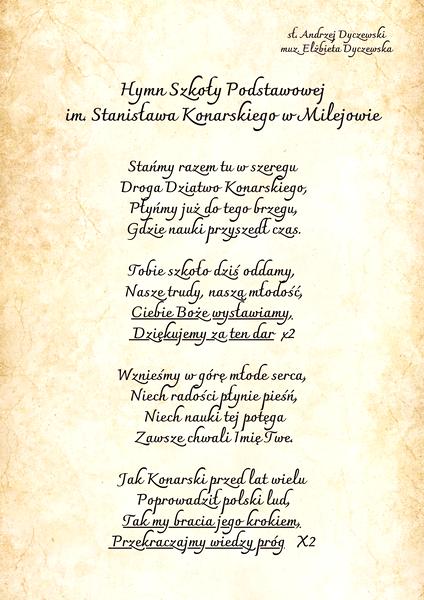 sł. Andrzej Dyczewski
muz. Elżbieta Dyczewska
Hymn Szkoły Podstawowej
im. Stanisława Konarskiego w Milejowie
Stańmy razem tu w szeregu
Droga Dziatwo Konarskiego,
Płyńmy już do tego brzegu,
Gdzie nauki przyszedł czas.
Tobie szkoło dziś oddamy,
Nasze trudy, naszą młodość,
Ciebie Boże wysławiamy,
Dziękujemy za ten dar x2
Wznieśmy w górę młode serca,
Niech radości płynie pieśń,
Niech nauki tej potęga
Zawsze chwali Imię Twe.
Jak Konarski przed lat wielu
Poprowadził polski lud,
Tak my bracia jego krokiem,
Przekraczajmy wiedzy próg X2